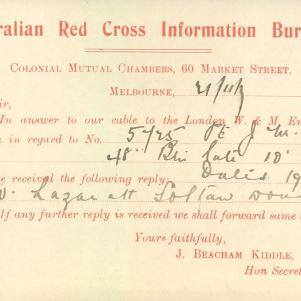 ralian Red Cross Information Bur
Colonial Mutual Chambers, 60 Market Street,
Melbourne,
ir,
In answer to our cable to the London W. & M. En
e in regard to No. 5725 Pt J. M.
48 Bn late 10
ve received the following reply: Dalis 19
Lazarett Soltau
If any further reply is received we shall forward same
Yours faithfully,
J. BEACHAM KIDDLE,
Hon Secret